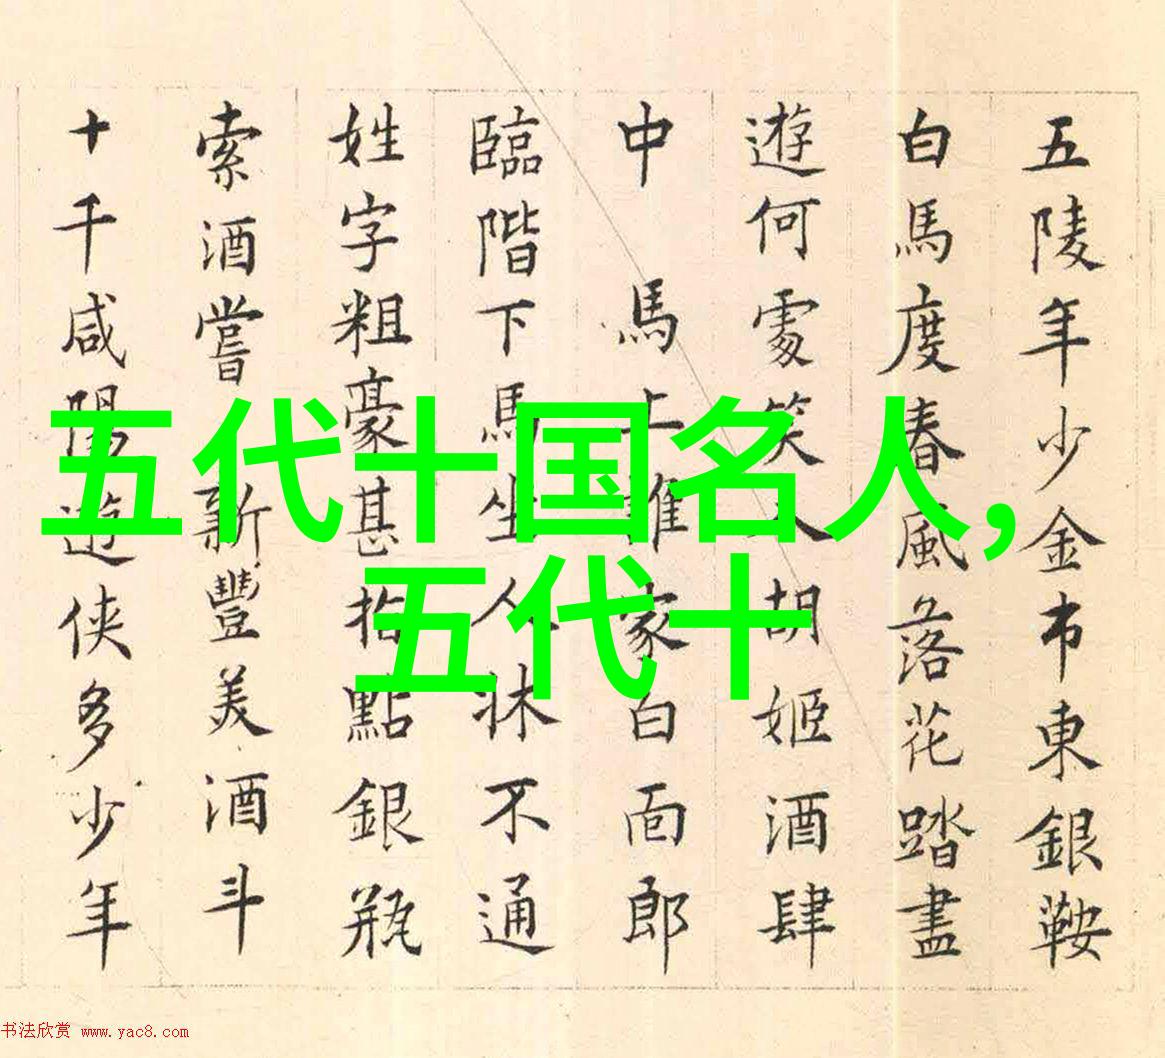 五陵年少金市東銀鞍
白馬度春風落花踏盡
遊何處笑入胡姬酒肆
中馬上誰家白面郎
臨階下馬坐人牀不通
姓字粗豪甚指點銀瓶
索酒嘗新豐美酒斗
十千咸陽遊侠多少年
五代十国名人,
五代十
书法欣赏 www.yac8.com